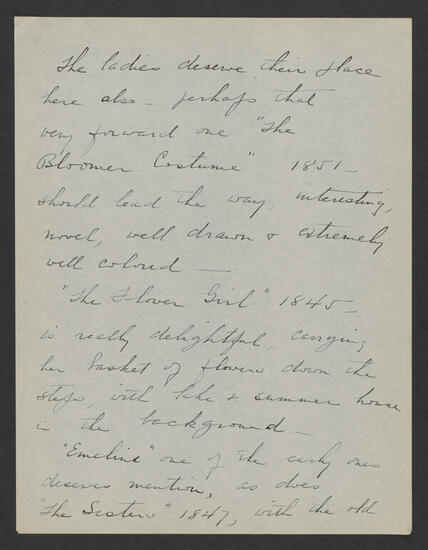 The ladies deserve their place
here also - perhaps that
very forward one "The
Bloomer Costume" 1851 -
should lead the way, interesting,
novel, well drawn & extremely
well colored -
"The Flower Girl" 1845 -
is really delightful, carrying
her basket of flowers down the
steps, with lake & summer house
in the background -
"Emeline" one of the early ones
deserves mention, as does
"The Sisters" 1847, with the old